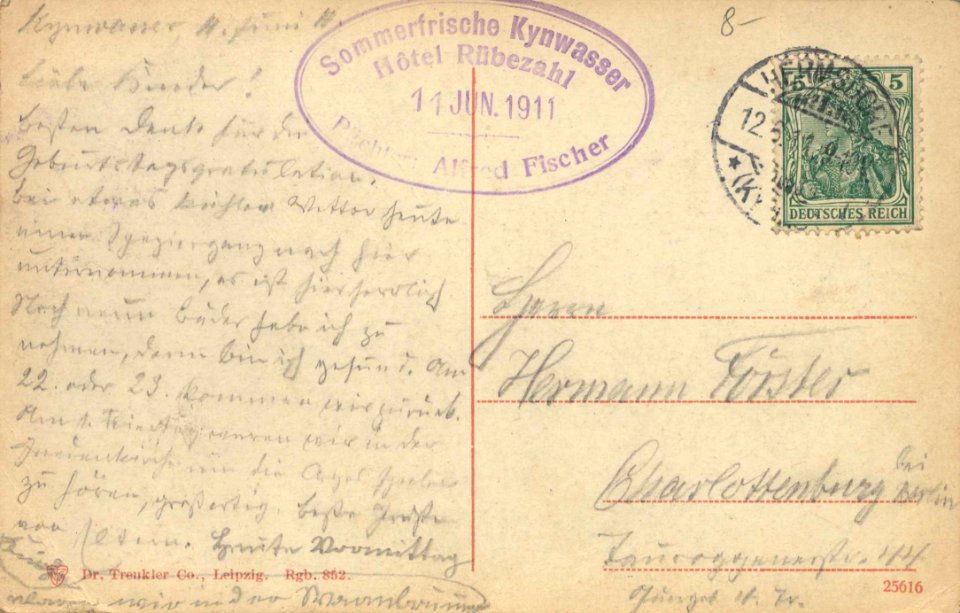 Kynwasser, 11. Juni 11.
Liebe Kinder!
Besten Dank für die
Geburtstagsgratulation.
Bei etwas kühlem Wetter heute
einen Spaziergang nach hier
unternommen, es ist hier herrlich
Noch neun Bäder habe ich zu
nehmen, dann bin ich gesund. Am
22. oder 23. kommen wir zurück.
Am 1. Feiertag waren wir in der
um die Orgel
zu hören, großartig. Beste Grüße
von Eltern. Heute Vormittag
waren wir in der Warmbrunner
Sommerfrische Kynwasser
Hôtel Rübezahl
11 JUN. 1911
Pächter: Alfred Fischer
8-
HERMSDORF
12.
(KY
5
DEUTSCHES REICH
Herrn
Hermann Förster
Charlottenburg bei Berlin
Tauroggenerstr. 44
Dr. Trenkler Co., Leipzig. Rgb. 852.
25616